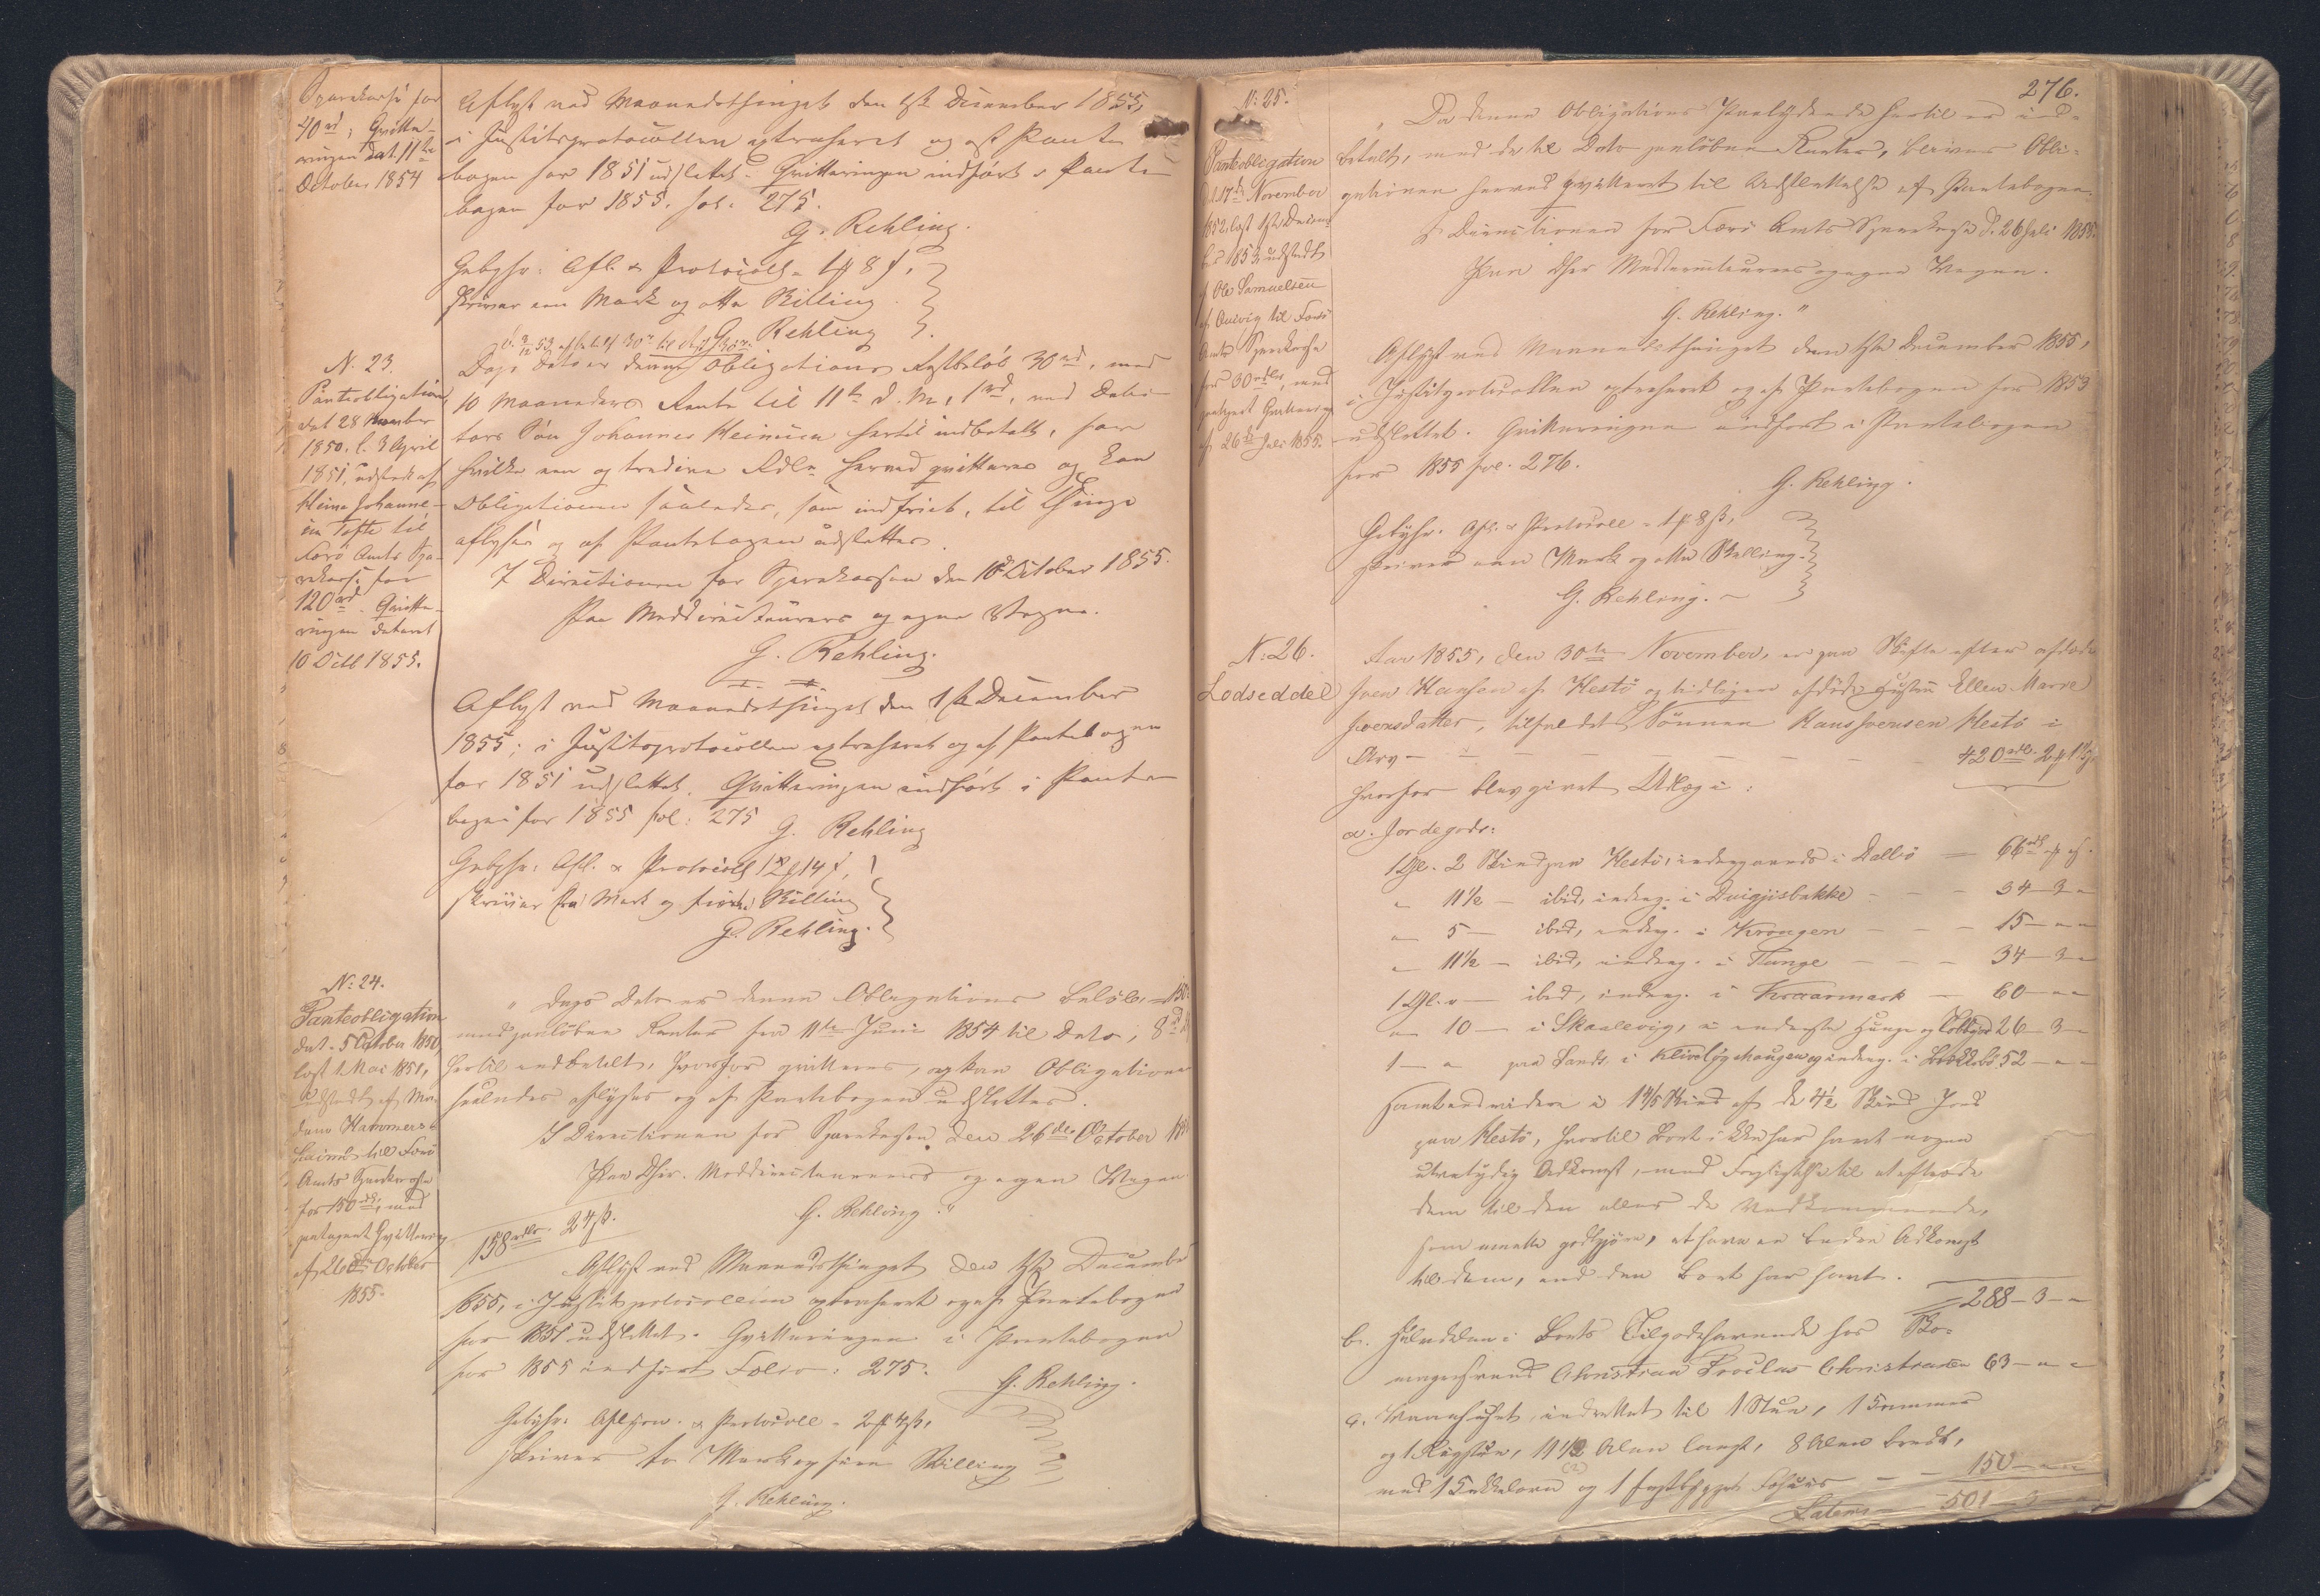 Sparekasse for
40 rd; Qvitte-
ringen dat. 11te
October 1854
Aflyst ved Maanedsthinget den 1ste December 1855,
i Justitsprotocollen extraheret og af Pante-
bogen for 1851 udslettet. Qvitteringen indført i Pante-
bogen for 1855. fol. 275.
G. Rehling.
Gebyhr: Afl. & Protocoll. 1 ℳ 8 ß,
skriver een Mark og otte Skilling
G. Rehling
N. 23.
Panteobligation
dat 28 November
1850. l. 3 April
1851, udstedt af
Heine Johanne-
sen Tofte til
Færø Amts Spa-
rekasse for
120 rd. Qvitte-
ringen dateret
10 Octb 1855.
Dags Dato er denne Obligations Restbeløb 30 rd, med
10 Maaneders Rente til 11te d. M., 1 rd, ved Debi-
tors Søn Johannes Heinesen hertil indbetalt, for
hvilke een og tredive Rdlr herved qvitteres og kan
Obligationen saaledes, som indfriet, til Thinge
aflyses og af Pantebogen udslettes.
I Directionen for Sparekassen den 10 October 1855.
Paa Meddirecteurers og egne Vegne.
G. Rehling.
Aflyst ved Maanedsthinget den 1ste December
1855; i Justitsprotocollen extraheret og af Pantebogen
for 1851 udslettet. Qvitteringen indført i Pante-
bogen for 1855 fol: 275
G. Rehling
Gebyhr: Afl. & Protocoll 2 ℳ 14 ß,
skriver to Mark og fjorten Skilling
G. Rehling.
N: 24.
Panteobligation
dat. 5 October 1850,
læst 1 Mai 1851,
udstedt af
Hammers-
haimb til Færø
Amts Sparekasse
for 150 rdl, med
paategnet Qvittering
af 26de October
1855.
" Dags Dato er denne Obligations Beløb, 150
med paaløbne Renter fra 11te Juni 1854 til Dato, 8
hertil indbetalt, hvorfor qvitteres, og kan Obligationen
saaledes aflyses og af Pantebogen udslettes.
I Directionen for Sparekassen, den 26de October 1855
Paa Dhrr. Meddirecteurers og egen Vegne
G. Rehling."
158 rdlr. 24 ß.
Aflyst ved Maanedsthinget den 1ste December
1855, i Justitsprotocollen extraheret og af Pantebogen
for 1851 udslettet. Qvitteringen i Pantebogen
for 1855 indført Folio: 275.
G. Rehling.
Gebyhr: Aflysn. & Protocoll - 2 ℳ 4 ß,
skriver to Mark og fire Skilling
G. Rehling.
276.
N: 25.
Panteobligation
d. 17de November
1852, læst 1ste Decem-
ber 1853, udstedt
af Ole Samuelsen
af Qvivig til Færø
Amts Sparekasse
for 30 rdlr, med
paategnet Qvittering
af 26de Juli 1855.
" Da denne Obligations Paalydende hertil er ind-
betalt, med de til Dato paaløbne Renter, bliver Obli-
gationen herved qvitteret til Udslettelse af Pantebogen.
I Directionen for Færø Amts Sparekasse d. 26 Juli 1855.
Paa Dhrr Meddirecteurers og egne Vegne.
G. Rehling."
Aflyst ved Maanedsthinget den 1ste December 1855,
i Justitsprotocollen extraheret og af Pantebogen for 1853
udslettet. Qvitteringen indført i Pantebogen
for 1855 fol. 276.
G. Rehling.
Gebyhr. Afl. & Protocoll - 1 ℳ 8 ß,
skriver een Mark og otte Skilling.
G. Rehling.
N: 26.
Lodseddel
Aar 1855, den 30te November, er paa Skifte efter afdøde
Joen Hansen af Hestø og tidligere afdøde Hustru Ellen Marie
Joensdatter, tilfaldet Sønnen Hans Joensen Hestø i
Arv - - - - - - 420 rdl. 2 ℳ 11 ß
hvorfor blev givet Udlæg i:
a. Jordegods:
1 Gl. 2 Skind paa Hestø, indegaaende i Dallø - 66 rdl
" 11½ - ibid, indeg. i Dvigjisbakke - - - 34 - 3 -
" 5 - ibid, indeg. i Krongen - - - 15 - " -
" 11½ - ibid, indeg. i Tunge - - - 34 - 3 -
1 Gl. " - ibid, indeg. i Kraarmark - 60 - " -
" 10 - i Skaalevig, i inderste Hunge og 26 - 3 -
1 - " paa Sands, i og indeg. i 52 - " -
samt endvidere i 1⅘ Skind af de 4½ Skind Jord
paa Hestø, hvortil Boet ikke har havt nogen
utvetydig Adkomst, med Forpligtelse til at aftræde
dem til den eller de Vedkommende,
som maatte godtgjøre, at have en bedre Adkomst
til dem, end den Boet har havt.
288 - 3 - "
b. Halvdelen i Boets Tilgodehavende hos Bo-
magerhrrend Christian Broelas Christiansen 63 - " -
c. Vaanhuset, indrettet til 1 Stue, 1 Kammer
og 1 Røgstue, 11½ Alen langt, 8 Alen bredt,
med 1 og 1 fastbygget - - 150 - " -
Lateris - 501 - 3 -